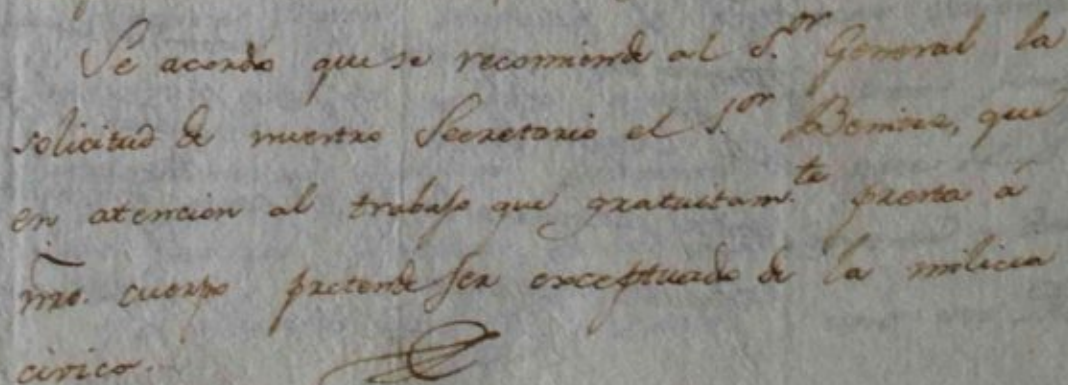 Se acordó que se recomiende al S.or General la
solicitud de nuestro Secretario el S.or Benites, que
en atencion al trabajo que gratuitam.te presta á
nro. cuerpo pretende ser exceptuado de la milicia
civica.